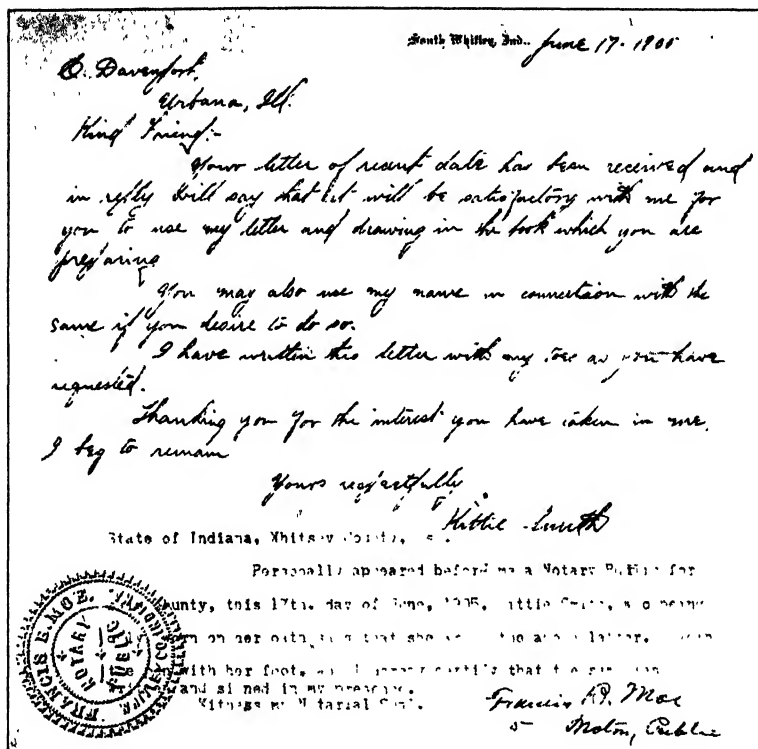 South Whitley, Ind., June 17- 1905
C. Davenport,
Urbana, Ill.
Kind Friend:-
Your letter of recent date has been received and
in reply Will say that it will be satisfactory with me for
you to use my letter and drawing in the book which you are
preparing
You may also use my name in connection with the
same if you desire to do so.
I have written this letter with my toes as you have
requested.
Thanking you for the interest you have taken in me,
I beg to remain
Yours respectfully
Kittie Smith
State of Indiana, County,
Personally appeared before me a Notary Public for
County, this 17th. day of June, 1905, being
on her that she letter.
with her foot, certify that
and signed in my presence.
Witness my Notarial Seal.
Francis E. Moe
Notary Public
FRANCIS E. MOE.
NOTARY